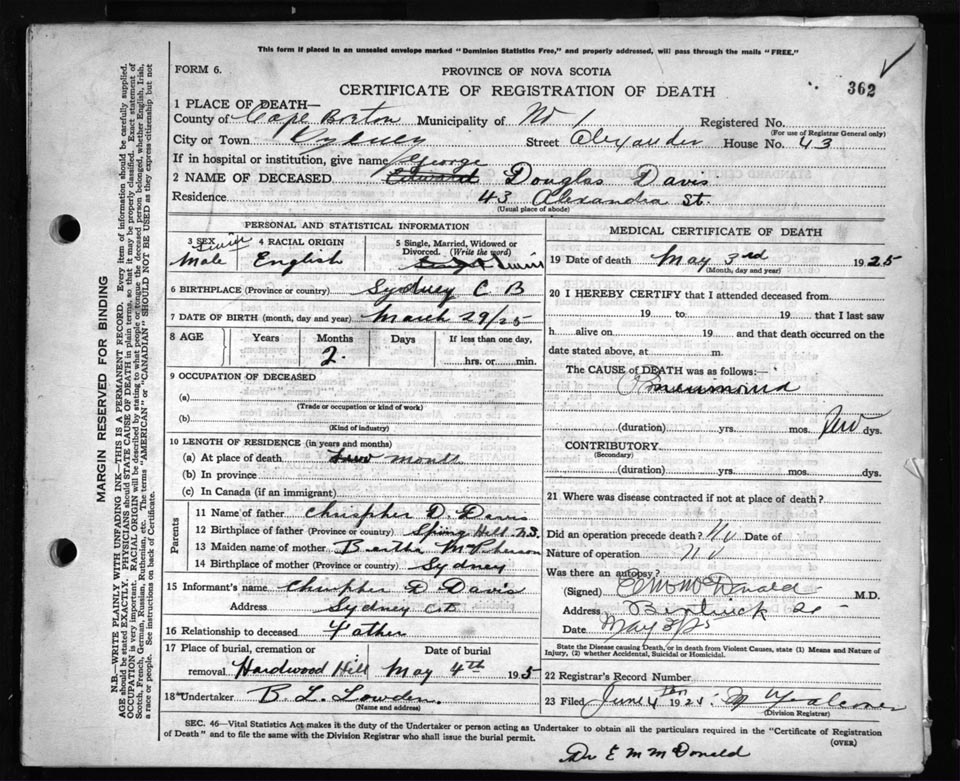 This form if placed in an unsealed envelope marked "Dominion Statistics Free," and properly addressed, will pass through the mails "FREE."
FORM 6.
PROVINCE OF NOVA SCOTIA
362
CERTIFICATE OF REGISTRATION OF DEATH
1 PLACE OF DEATH—
County of Cape Breton Municipality of No 1 Registered No.
(For use of Registrar General only)
City or Town Sydney Street Alexander House No. 43
If in hospital or institution, give name
George
2 NAME OF DECEASED. Edward Douglas Davis
Residence 43 Alexandra St.
(Usual place of abode)
PERSONAL AND STATISTICAL INFORMATION
3 SEX 4 RACIAL ORIGIN 5 Single, Married, Widowed or Divorced. (Write the word)
Male English
6 BIRTHPLACE (Province or country) Sydney C B
7 DATE OF BIRTH (month, day and year) March 29/25
8 AGE Years Months Days If less than one day,
2. hrs. or min.
9 OCCUPATION OF DECEASED
(a)
(Trade or occupation or kind of work)
(b)
(Kind of industry)
10 LENGTH OF RESIDENCE (in years and months)
(a) At place of death month
(b) In province
(c) In Canada (if an immigrant)
Parents
11 Name of father Chrispher D. Davis
12 Birthplace of father (Province or country) Spring Hill N.S.
13 Maiden name of mother Bertha McPherson
14 Birthplace of mother (Province or country) Sydney
15 Informant's name Chrispher D Davis
Address Sydney C.B.
16 Relationship to deceased Father
17 Place of burial, cremation or removal Date of burial
Hardwood Hill May 4th 1925
18 Undertaker B. L. Lowden.
(Name and address)
MEDICAL CERTIFICATE OF DEATH
19 Date of death May 3rd 1925
(Month, day and year)
20 I HEREBY CERTIFY that I attended deceased from
19 to 19 that I last saw
h alive on 19 and that death occurred on the
date stated above, at m.
The CAUSE of DEATH was as follows:—
Pneumonia
(duration) yrs. mos. dys.
CONTRIBUTORY
(Secondary)
(duration) yrs. mos. dys.
21 Where was disease contracted if not at place of death?
Did an operation precede death? No Date of
Nature of operation No
Was there an autopsy?
(Signed) E M McDonald M.D.
Address
Date May
State the Disease causing Death, or in death from Violent Causes, state (1) Means and Nature of Injury, (2) whether Accidental, Suicidal or Homicidal.
22 Registrar's Record Number
23 Filed June 4th 1925
(Division Registrar)
SEC. 46—Vital Statistics Act makes it the duty of the Undertaker or person acting as Undertaker to obtain all the particulars required in the "Certificate of Registration
of Death" and to file the same with the Division Registrar who shall issue the burial permit.
(OVER)
Dr E M McDonald
MARGIN RESERVED FOR BINDING
N.B.—WRITE PLAINLY WITH UNFADING INK—THIS IS A PERMANENT RECORD. Every item of information should be carefully supplied.
AGE should be stated EXACTLY. PHYSICIANS should STATE CAUSE OF DEATH in plain terms, so that it may be properly classified. Exact statement of
OCCUPATION is very important. RACIAL ORIGIN will be described by stating to what people or tongue the deceased person belonged, whether English, Irish,
Scotch, French, German, Russian, Ruthenian, etc. The terms "AMERICAN" or "CANADIAN" SHOULD NOT BE USED as they express citizenship but not
a race or people. See instructions on back of Certificate.